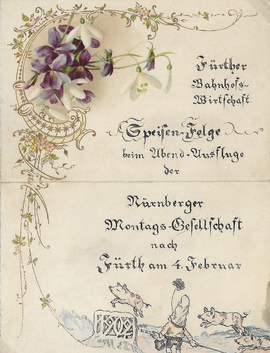 Fürther
Bahnhofs-
Wirtschaft
Speisen-Folge
beim Abend-Ausfluge
der
Nürnberger
Montags-Gesellschaft
nach
Fürth am 4. Februar
1902